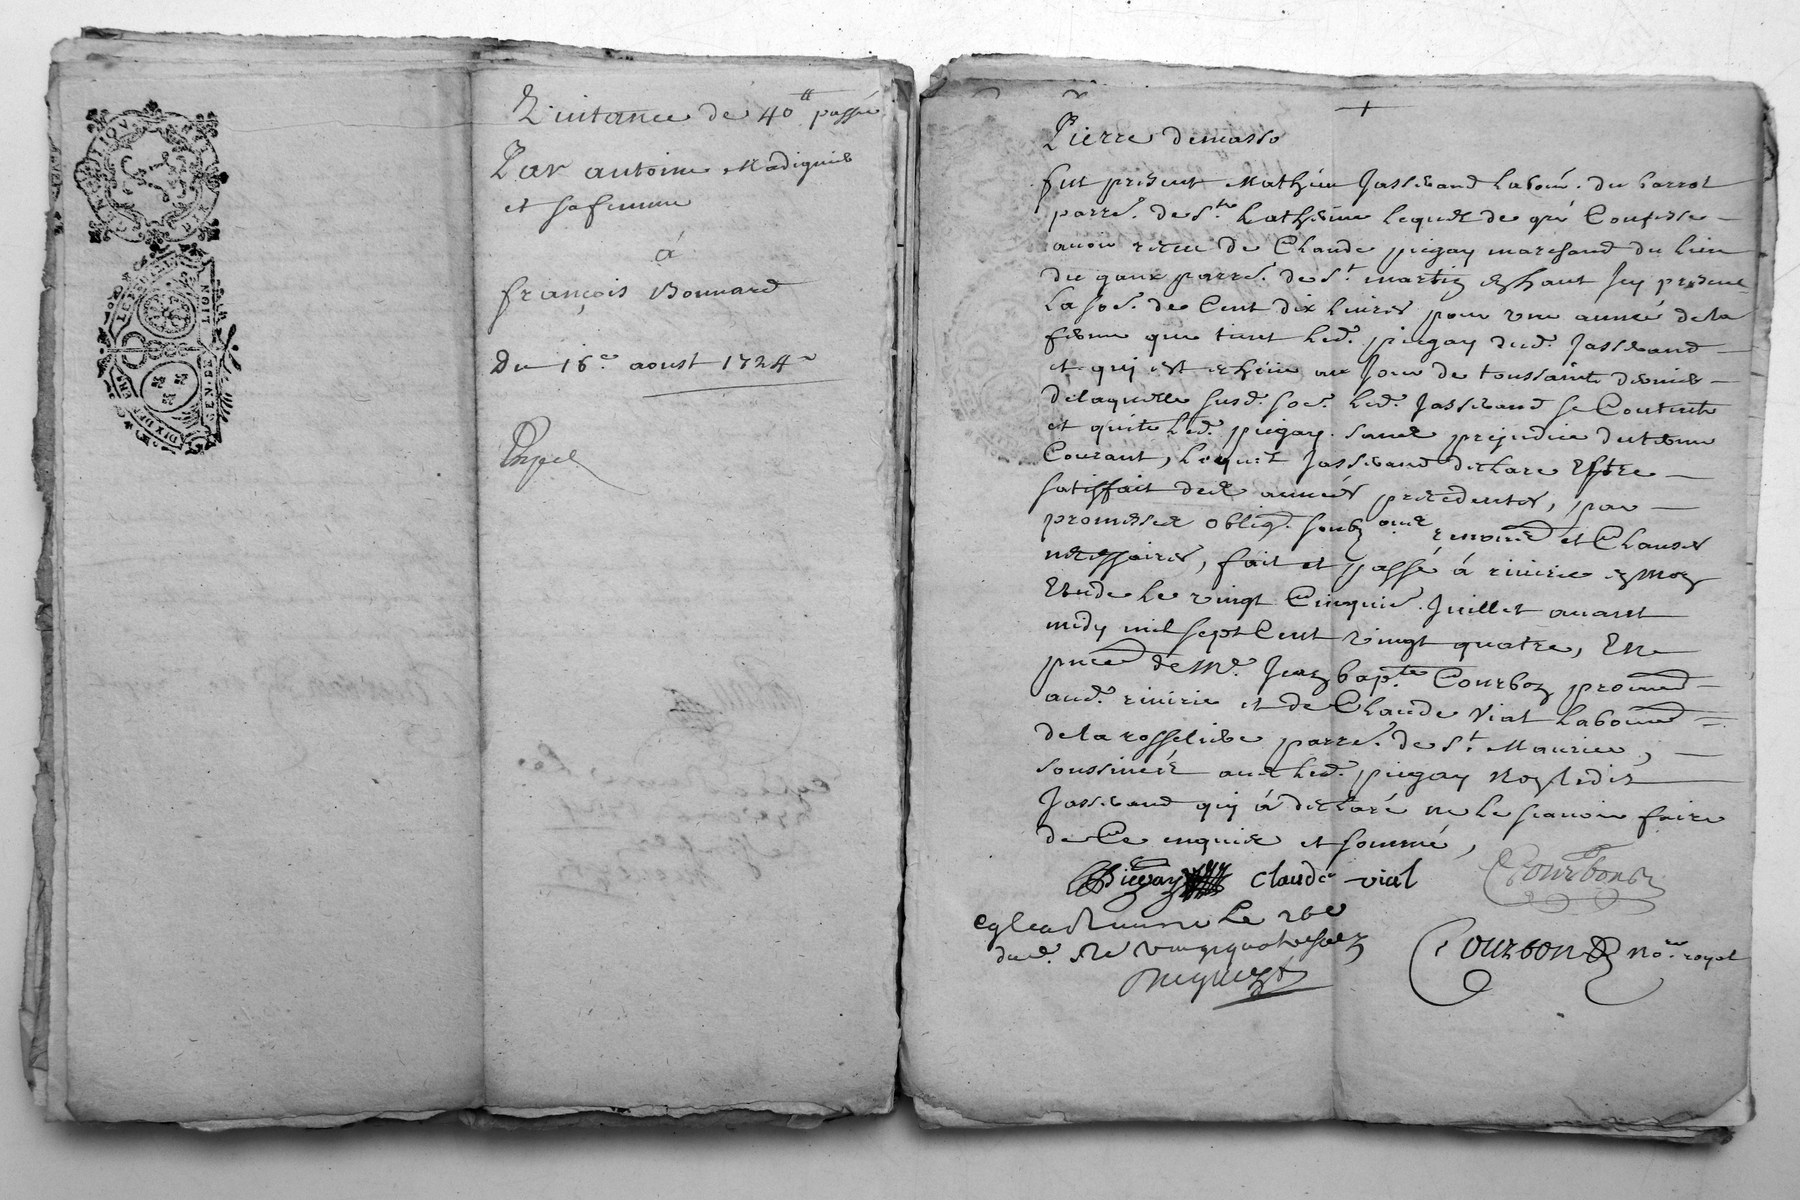 Quittance de 40tt passée
Par antoine Madignier
et sa femme
á
françois Bonnard
Du 16e aoust 1724
Pierre demasso
fut present Mathieu Jasserand Labour. du barrot
parre. de Ste Catherine lequel de gré Confesse
avoir receu de Claude piegay marchand du lieu
du gaux parre. de St martin en haut Icy present
La soe. de Cent dix livres pour une année de la
ferme que tient led. piegay dud. Jasserand
et quj est escheue au Jour de toussaints dernier
de laquelle susd. soe. led. Jasserand se Contente
et quitte led. piegay. sans prejudice du terme
Courant, lequel Jasserand declare Estre
satisfait des années precedentes, par
promesses obliq. soubz aues renonc et Clauses
necessaires, fait et passé á riverie en mon
Etude le vingt Cinquie. Juillet avant
midy mil sept Cent vingt quatre, En
pnce de Me. Jean bapte Courbon
aud. riverie et de Claude Vial Laboure
de la rosseliere parre. de St. Maurice,
soussignés avec led. piegay non ledit
Jasserand quj á declaré ne le scavoir faire
de Ce enquis et sommé,
CPiegay Claude vial Courbon
Le 26e
dud. Re vingt quatre solz
Courbon No.re royal